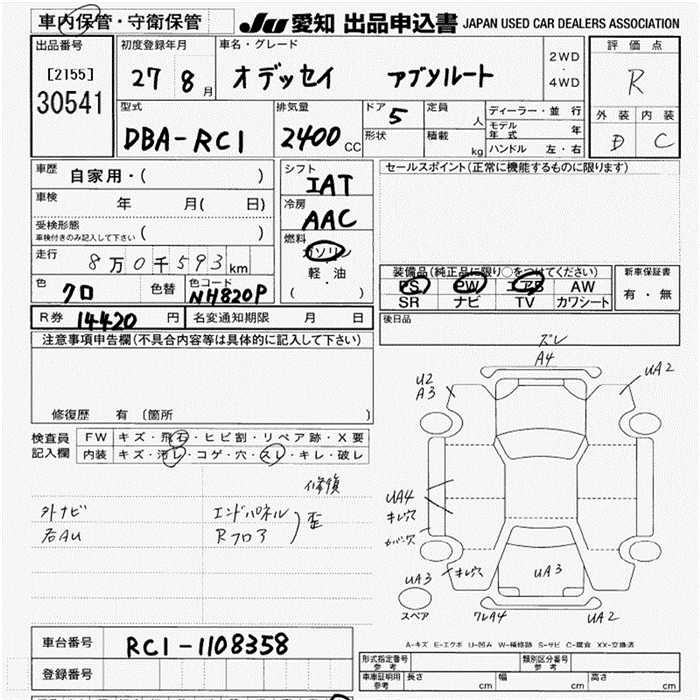 車内保管・守衛保管
JU 愛知 出品申込書 JAPAN USED CAR DEALERS ASSOCIATION
出品番号
[2155]
30541
初度登録年月
27 8月
車名・グレード
オデッセイ アブソルート
2WD
・
4WD
評価点
R
外装 内装
D C
型式
DBA-RC1
排気量
2400 CC
ドア 5
形状
定員 人
積載 kg
ディーラー・並行
モデル年式 年
ハンドル 左・右
車歴 自家用・( )
車検 年 月( 日)
受検形態
車検付きのみ記入して下さい ( )
走行 8万0千593km
色 クロ 色替 色コード NH820P
シフト
IAT
冷房
AAC
燃料
ガソリン
軽・油
( )
セールスポイント(正常に機能するものに限ります)
装備品(純正品に限り○をつけてください)
PS PW エアB AW
SR ナビ TV カワシート
新車保証書
有・無
R券 14420 円 名変通知期限 月 日
後日品
注意事項申告欄(不具合内容等は具体的に記入して下さい)
修復歴 有 〔箇所 〕
検査員記入欄
FW キズ・飛石・ヒビ割・リペア跡・X要
内装 キズ・汚レ・コゲ・穴・スレ・キレ・破レ
修損
外ナビ エンドパネル
右AU Rフロア
歪
ズレ
A4
U2
A3
UA2
UA4
キレ穴
カバー欠
UA3
キレ穴
UA3
スペア
ワレA4
UA2
A-キズ E-エクボ U-凹み W-補修跡 S-サビ C-腐食 XX-交換済
車台番号 RC1-1108358
登録番号
形式指定番号 参考
類別区分番号 参考
車庫証明用 参考 長さ cm 幅 cm 高さ cm